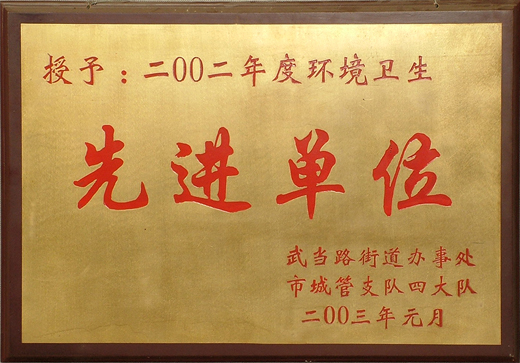 授予：二00二年度环境卫生
先进单位
武当路街道办事处
市城管支队四大队
二00三年元月